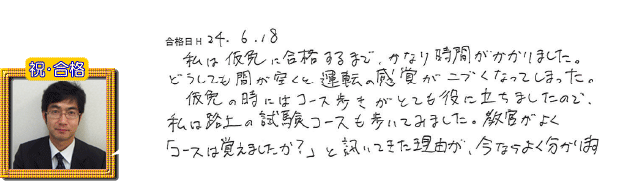 祝・合格
合格日 H 24. 6. 18
私は仮免に合格するまで、かなり時間がかかりました。
どうしても間が空くと運転の感覚がニブくなってしまった。
仮免の時にはコース歩きがとても役に立ちましたので、
私は路上の試験コースも歩いてみました。教官がよく
「コースは覚えましたか？」と訊いてきた理由が、今ならよく分かります